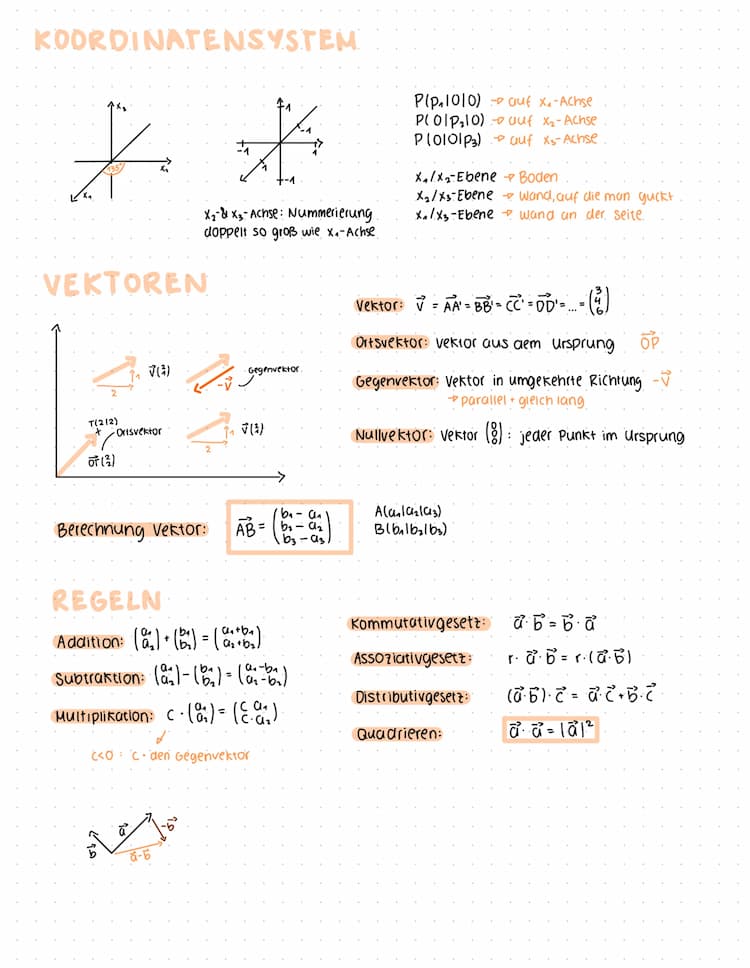 KOORDINATENSYSTEM
x₃
135°
x₂
x₁
1
-1
-1
1
1
-1
x₂-& x₃-Achse: Nummerierung
doppelt so groß wie x₁-Achse
P(p₁|0|0) → auf x₁-Achse
P(0|p₂|0) → auf x₂-Achse
P(0|0|p₃) → auf x₃-Achse
x₁/x₂-Ebene → Boden
x₂/x₃-Ebene → Wand, auf die man guckt
x₁/x₃-Ebene → Wand an der Seite
VEKTOREN
2
1
v⃗(2 1)
-v⃗
Gegenvektor
T(2|2)
Ortsvektor
OT⃗(2 2)
2
1
v⃗(2 1)
Vektor: v⃗ = AA'⃗ = BB'⃗ = CC'⃗ = DD'⃗ = ... = (3 4 6)
Ortsvektor: Vektor aus dem Ursprung OP⃗
Gegenvektor: Vektor in umgekehrte Richtung -v⃗
→ parallel + gleich lang
Nullvektor: Vektor (0 0 0): jeder Punkt im Ursprung
Berechnung Vektor: AB⃗ = (b₁ - a₁ b₂ - a₂ b₃ - a₃)
A(a₁|a₂|a₃)
B(b₁|b₂|b₃)
REGELN
Addition: (a₁ a₂) + (b₁ b₂) = (a₁+b₁ a₂+b₂)
Subtraktion: (a₁ a₂) - (b₁ b₂) = (a₁-b₁ a₂-b₂)
Multiplikation: c · (a₁ a₂) = (c·a₁ c·a₂)
c<0 : c · den Gegenvektor
Kommutativgesetz: a⃗ · b⃗ = b⃗ · a⃗
Assoziativgesetz: r · a⃗ · b⃗ = r · (a⃗ · b⃗)
Distributivgesetz: (a⃗ · b⃗) · c⃗ = a⃗ · c⃗ + b⃗ · c⃗
Quadrieren: a⃗ · a⃗ = |a⃗|²
b⃗
a⃗
-b⃗
a⃗-b⃗